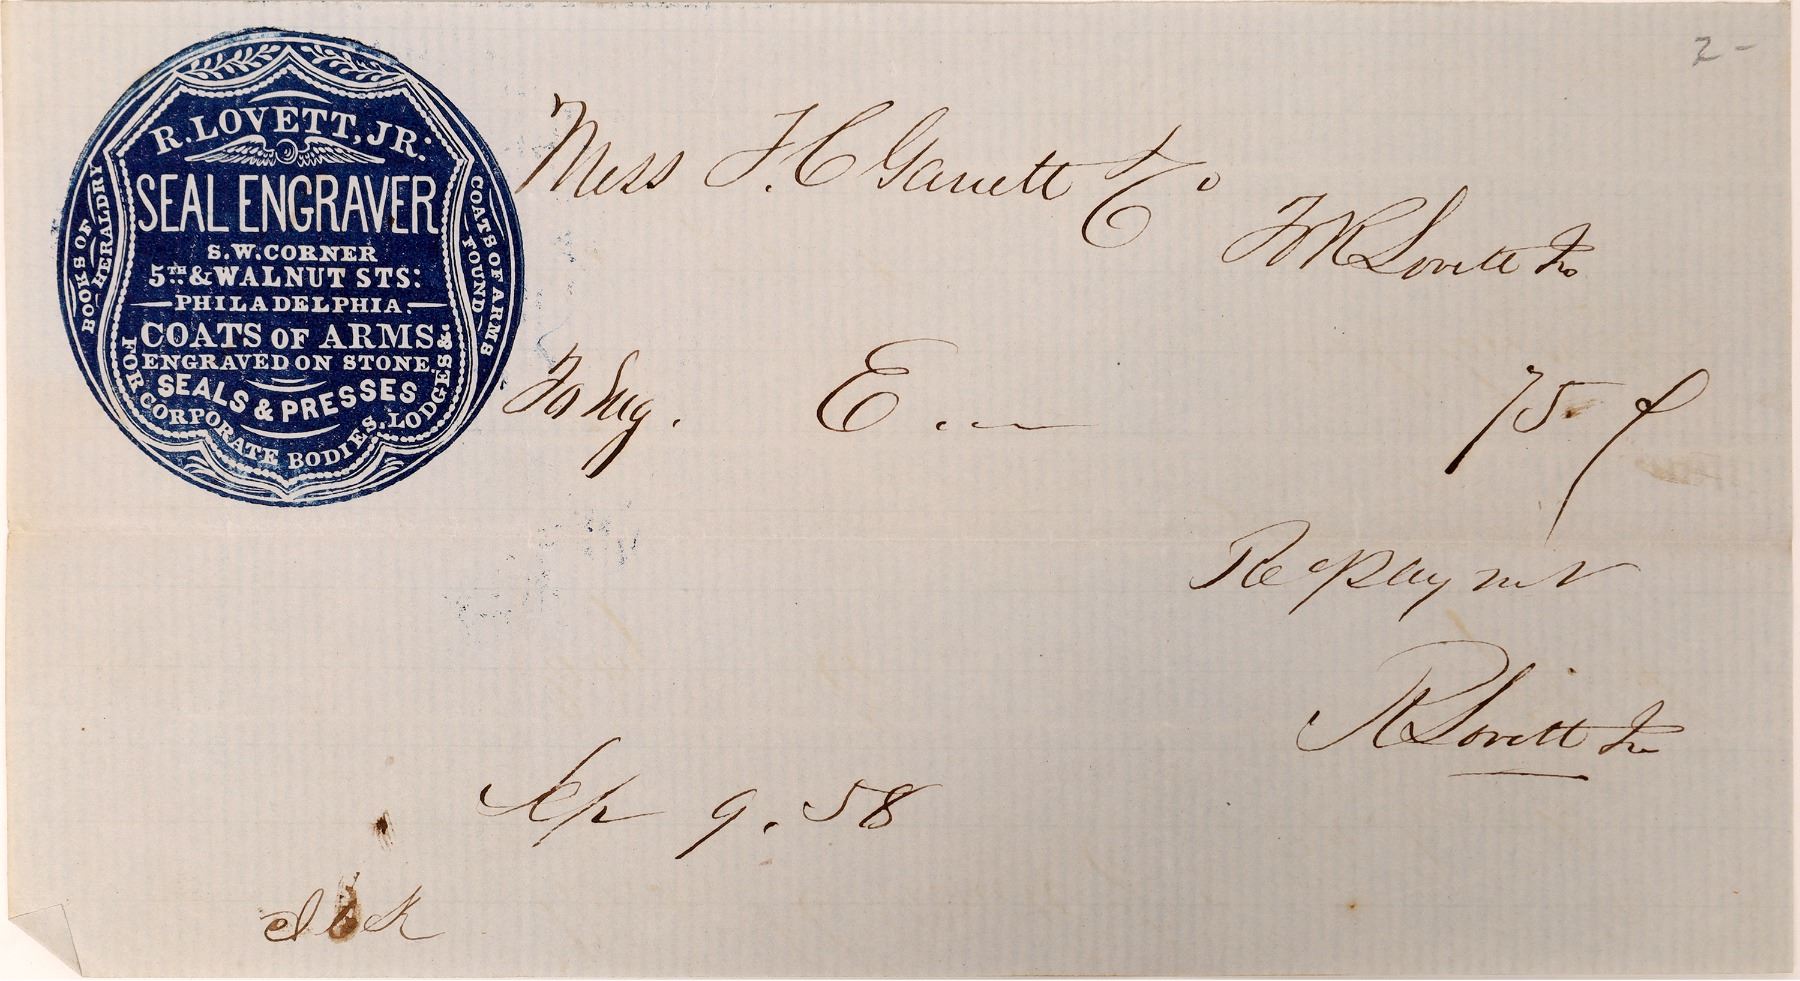 R. LOVETT, JR:
SEAL ENGRAVER
S. W. CORNER
5TH & WALNUT STS:
PHILADELPHIA.
COATS OF ARMS
ENGRAVED ON STONE.
SEALS & PRESSES
FOR CORPORATE BODIES, LODGES &.
BOOKS OF HERALDRY
COATS OF ARMS FOUND
2 -
Mess T. C Garrett & Co
To R Lovett Jr
To Eng. E . —
75
Rec paymt
R Lovett Jr
Sep 9. 58